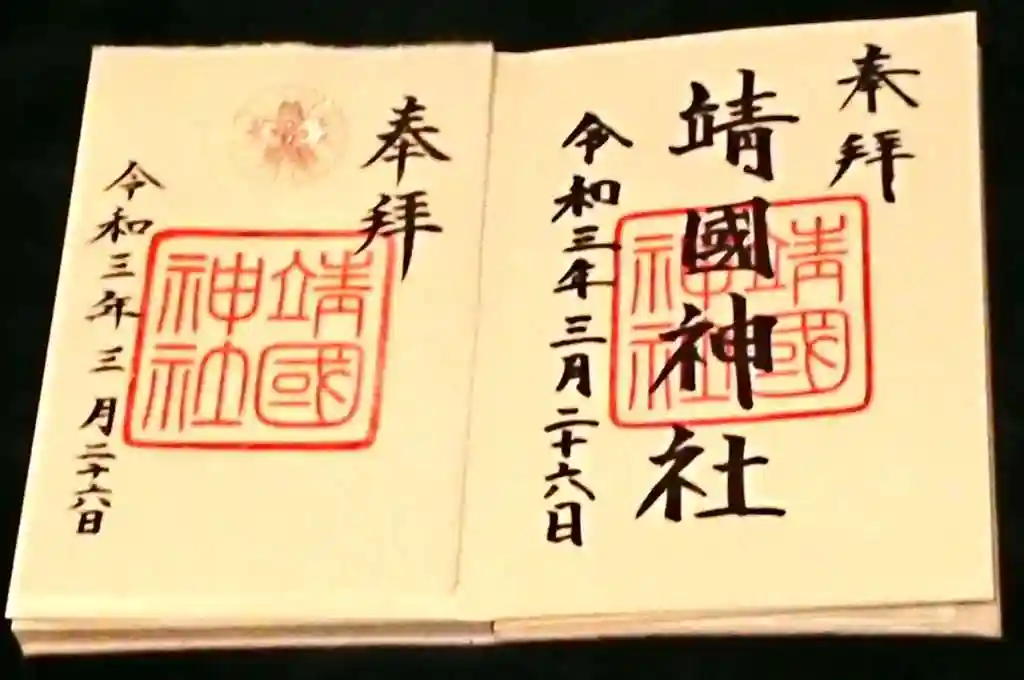 奉拝
靖國神社
靖國
神社
令和三年三月二十六日
奉拝
靖國
神社
令和三年三月二十六日